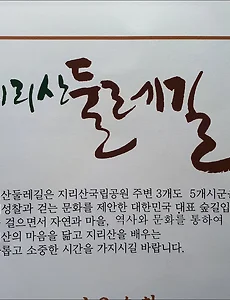 지리산둘레길
산둘레길은 지리산국립공원 주변 3개도 5개시군
성찰과 걷는 문화를 제안한 대한민국 대표 숲길입
걸으면서 자연과 마을, 역사와 문화를 통하여
산의 마음을 닮고 지리산을 배우는
롭고 소중한 시간을 가지시길 바랍니다.